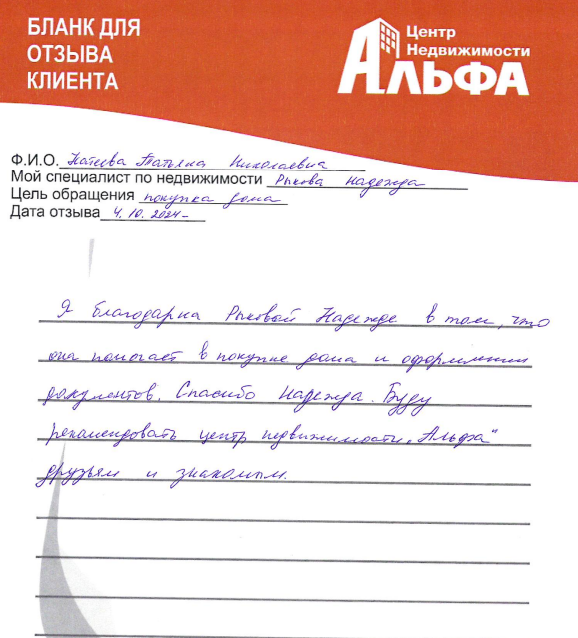 БЛАНК ДЛЯ
ОТЗЫВА
КЛИЕНТА
Центр
Недвижимости
АЛЬФА
Ф.И.О. Татьяна Николаевна
Мой специалист по недвижимости Рыкова Надежда
Цель обращения покупка дома
Дата отзыва 4.10.2024-
Я благодарна Рыковой Надежде в том, что
она помогает в покупке дома и оформлении
документов. Спасибо Надежда. Буду
рекомендовать центр недвижимости „Альфа“
друзьям и знакомым.